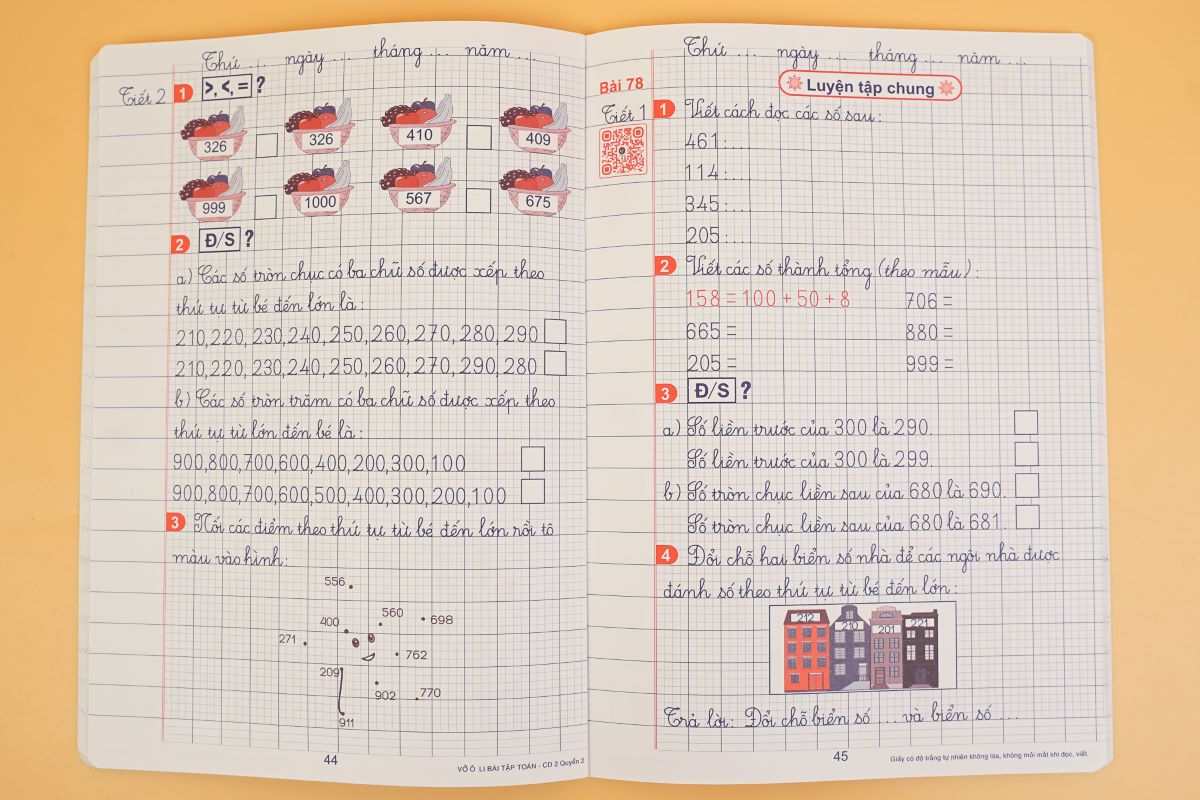 Thứ ... ngày ... tháng ... năm ...
Tiết 2
1 >, <, = ?
326 326 410 409
999 1000 567 675
2 Đ/S ?
a) Các số tròn chục có ba chữ số được xếp theo
thứ tự từ bé đến lớn là:
210,220,230,240,250,260,270,280,290
210,220,230,240,250,260,270,290,280
b) Các số tròn trăm có ba chữ số được xếp theo
thứ tự từ lớn đến bé là:
900,800,700,600,400,200,300,100
900,800,700,600,500,400,300,200,100
3 Nối các điểm theo thứ tự từ bé đến lớn rồi tô
màu vào hình:
556
400 560 698
271
762
209
902 770
911
44
VỞ Ô LI BÀI TẬP TOÁN - CD 2 Quyển 2
Thứ ... ngày ... tháng ... năm ...
Bài 78
Luyện tập chung
Tiết 1
1 Viết cách đọc các số sau:
461:...
114:...
345:...
205:...
2 Viết các số thành tổng (theo mẫu):
158 = 100 + 50 + 8 706 =
665 = 880 =
205 = 999 =
3 Đ/S ?
a) Số liền trước của 300 là 290.
Số liền trước của 300 là 299.
b) Số tròn chục liền sau của 680 là 690.
Số tròn chục liền sau của 680 là 681.
4 Đổi chỗ hai biển số nhà để các ngôi nhà được
đánh số theo thứ tự từ bé đến lớn:
212 210 201 221
Trả lời: Đổi chỗ biển số ... và biển số ...
45
Giấy có độ trắng tự nhiên không lóa, không mỏi mắt khi đọc, viết.